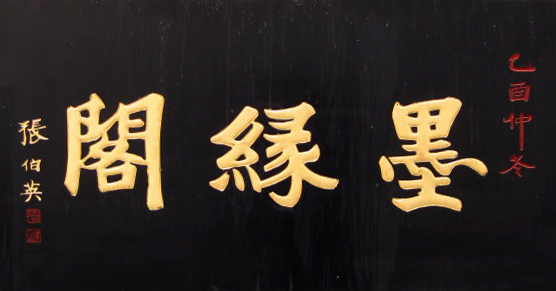 乙酉仲冬
墨緣閣
張伯英